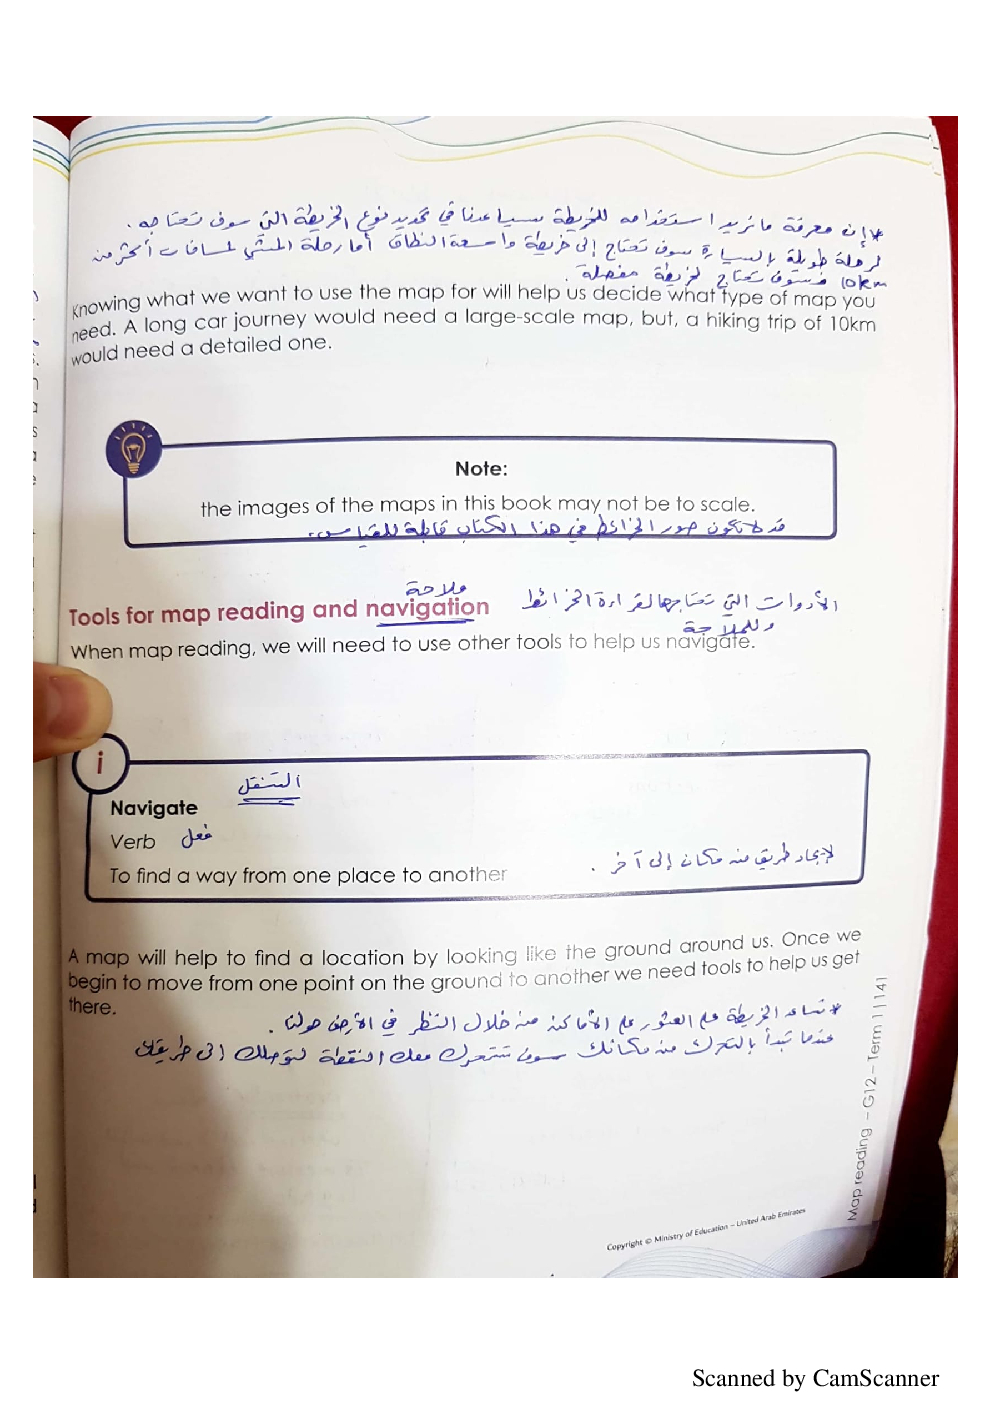 * إن معرفة ما نريد استخدامه للخريطة سيساعدنا في تحديد نوع الخريطة التي سوف نحتاجه .
لرحلة طويلة بالسيارة سوف نحتاج إلى خريطة واسعة النطاق أما رحلة المشي لمسافات أكثر من
10km فسوف نحتاج لخريطة مفصلة .
Knowing what we want to use the map for will help us decide what type of map you
need. A long car journey would need a large-scale map, but, a hiking trip of 10km
would need a detailed one.
Note:
the images of the maps in this book may not be to scale.
قد لا تكون صور الخرائط في هذا الكتاب قابلة للقياس .
ملاحة
Tools for map reading and navigation الأدوات التي نحتاجها لقراءة الخرائط
وللملاحة
When map reading, we will need to use other tools to help us navigate.
i
التنقل
Navigate
Verb فعل
To find a way from one place to another لإيجاد طريق من مكان إلى آخر .
A map will help to find a location by looking like the ground around us. Once we
begin to move from one point on the ground to another we need tools to help us get
there.
* تساعد الخريطة على العثور على الأماكن من خلال النظر في الأرض حولنا .
عندما تبدأ بالتحرك من مكانك سوف تتحرك معك النقطة لتوصلك الى طريقك
Map reading – G12 – Term 1 | 141
Copyright © Ministry of Education – United Arab Emirates
Scanned by CamScanner